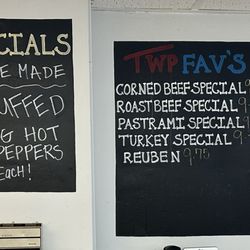 CIALS
E MADE
UFFED
G HOT
PEPPERS
EACH!
TWP FAV'S
CORNED BEEF SPECIAL 9
ROAST BEEF SPECIAL 9
PASTRAMI SPECIAL 9
TURKEY SPECIAL 9
REUBEN 9.75